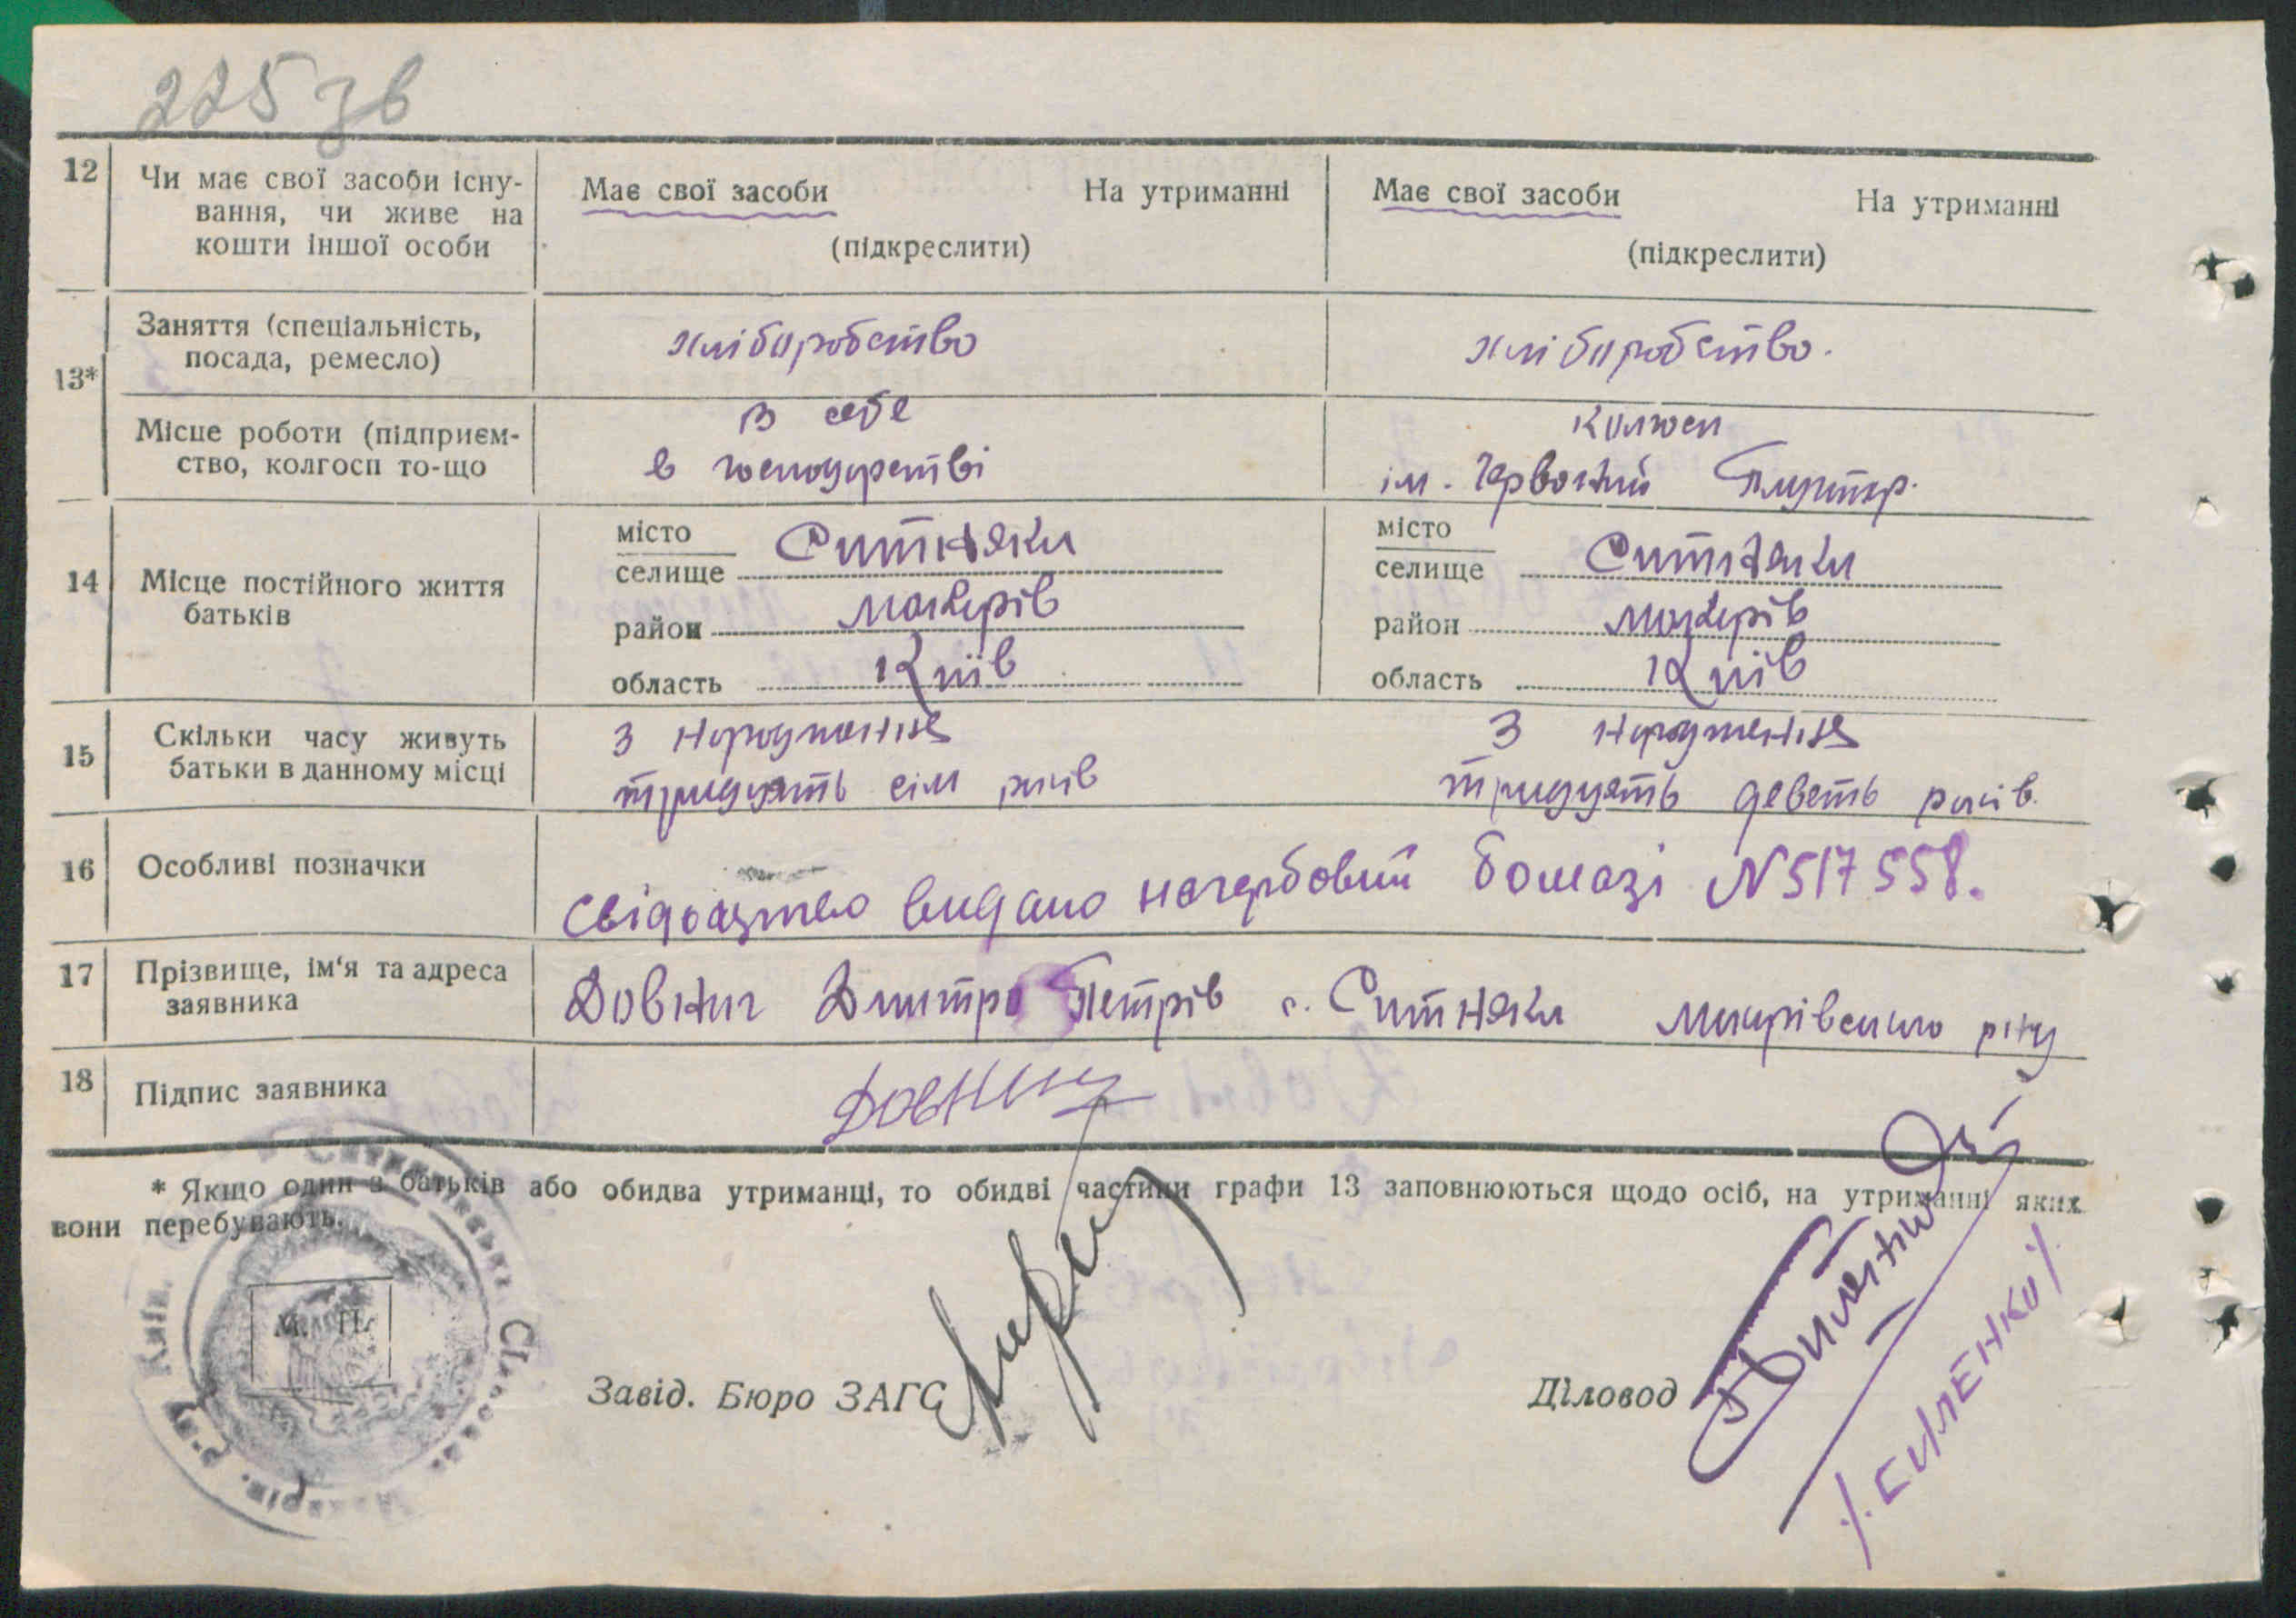 225 зв
12 Чи має свої засоби існу- Має свої засоби На утриманні Має свої засоби На утриманні
вання, чи живе на
кошти іншої особи (підкреслити) (підкреслити)
13* Заняття (спеціальність, хліборобство хліборобство.
посада, ремесло)
в себе колгосп
Місце роботи (підприєм- в господарстві ім. Червоний
ство, колгосп то-що
14 Місце постійного життя місто Ситняки місто Ситняки
батьків селище селище
район Макарів район Макарів
область Київ область Київ
15 Скільки часу живуть З народження З народження
батьки в данному місці тридцять сім років тридцять девять років.
16 Особливі позначки
свідоцтво видано на гербовій бомазі N 517558.
17 Прізвище, ім'я та адреса Довнич Дмитро Петрів с. Ситняки Макарівського р-ну
заявника
18 Підпис заявника Довнич
* Якщо один з батьків або обидва утриманці, то обидві частини графи 13 заповнюються щодо осіб, на утриманні яких
вони перебувають.
М. П.
Завід. Бюро ЗАГС Діловод
/. СИЛЕНКО /.